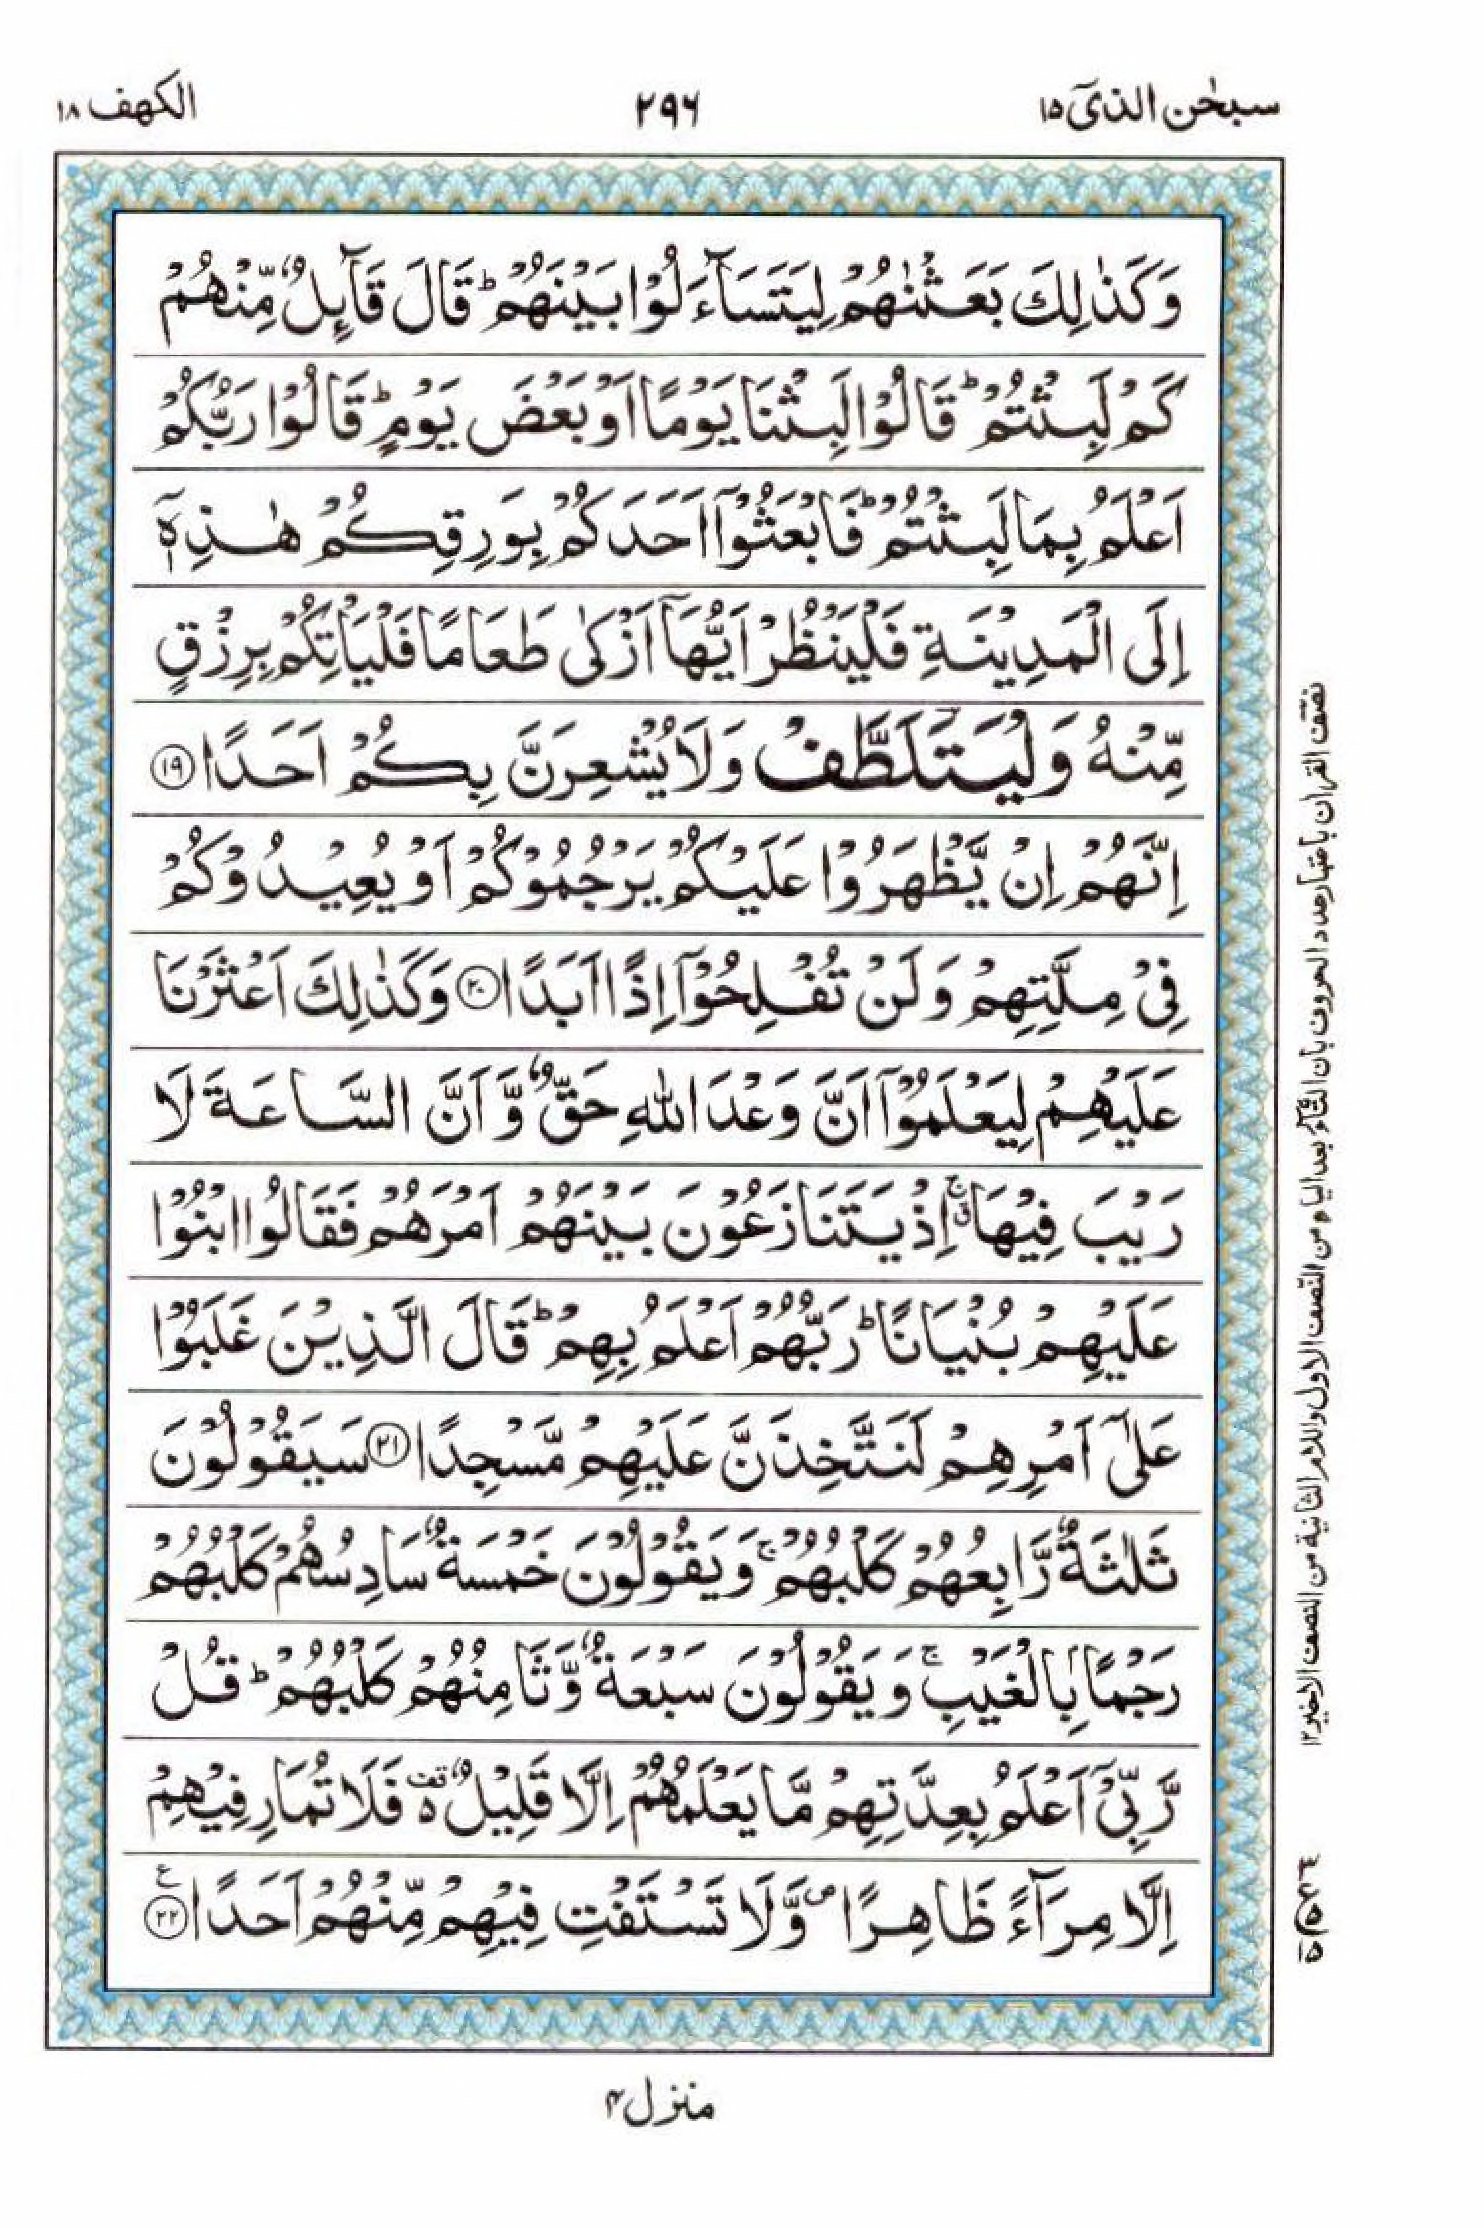 سبحٰن الذیٓ ۱۵
۲۹۶
الکهف ۱۸
وَكَذٰلِكَ بَعَثْنٰهُمْ لِيَتَسَآءَلُوْا بَيْنَهُمْ ؕ قَالَ قَآئِلٌ مِّنْهُمْ
كَمْ لَبِثْتُمْ ؕ قَالُوْا لَبِثْنَا يَوْمًا اَوْ بَعْضَ يَوْمٍ ؕ قَالُوْا رَبُّكُمْ
اَعْلَمُ بِمَا لَبِثْتُمْ ؕ فَابْعَثُوْۤا اَحَدَكُمْ بِوَرِقِكُمْ هٰذِهٖۤ
اِلَى الْمَدِيْنَةِ فَلْيَنْظُرْ اَيُّهَاۤ اَزْكٰى طَعَامًا فَلْيَاْتِكُمْ بِرِزْقٍ
مِّنْهُ وَلْيَتَلَطَّفْ وَلَا يُشْعِرَنَّ بِكُمْ اَحَدًا ۱۹
اِنَّهُمْ اِنْ يَّظْهَرُوْا عَلَيْكُمْ يَرْجُمُوْكُمْ اَوْ يُعِيْدُوْكُمْ
فِيْ مِلَّتِهِمْ وَلَنْ تُفْلِحُوْۤا اِذًا اَبَدًا ۲۰ وَكَذٰلِكَ اَعْثَرْنَا
عَلَيْهِمْ لِيَعْلَمُوْۤا اَنَّ وَعْدَ اللهِ حَقٌّ وَّ اَنَّ السَّاعَةَ لَا
رَيْبَ فِيْهَا ۚ اِذْ يَتَنَازَعُوْنَ بَيْنَهُمْ اَمْرَهُمْ فَقَالُوا ابْنُوْا
عَلَيْهِمْ بُنْيَانًا ؕ رَبُّهُمْ اَعْلَمُ بِهِمْ ؕ قَالَ الَّذِيْنَ غَلَبُوْا
عَلٰۤى اَمْرِهِمْ لَنَتَّخِذَنَّ عَلَيْهِمْ مَّسْجِدًا ۲۱ سَيَقُوْلُوْنَ
ثَلٰثَةٌ رَّابِعُهُمْ كَلْبُهُمْ ۚ وَيَقُوْلُوْنَ خَمْسَةٌ سَادِسُهُمْ كَلْبُهُمْ
رَجْمًۢا بِالْغَيْبِ ۚ وَيَقُوْلُوْنَ سَبْعَةٌ وَّثَامِنُهُمْ كَلْبُهُمْ ؕ قُلْ
رَّبِّيْۤ اَعْلَمُ بِعِدَّتِهِمْ مَّا يَعْلَمُهُمْ اِلَّا قَلِيْلٌ ۵ قف فَلَا تُمَارِ فِيْهِمْ
اِلَّا مِرَآءً ظَاهِرًا ۪ وَّلَا تَسْتَفْتِ فِيْهِمْ مِّنْهُمْ اَحَدًا ۲۲ ع
نصف القران باعتبار عدد الحروف بان التاء بعد الیاء من النصف الاول واللام الثانیة من النصف الاخیر ۱۲
منزل ۴